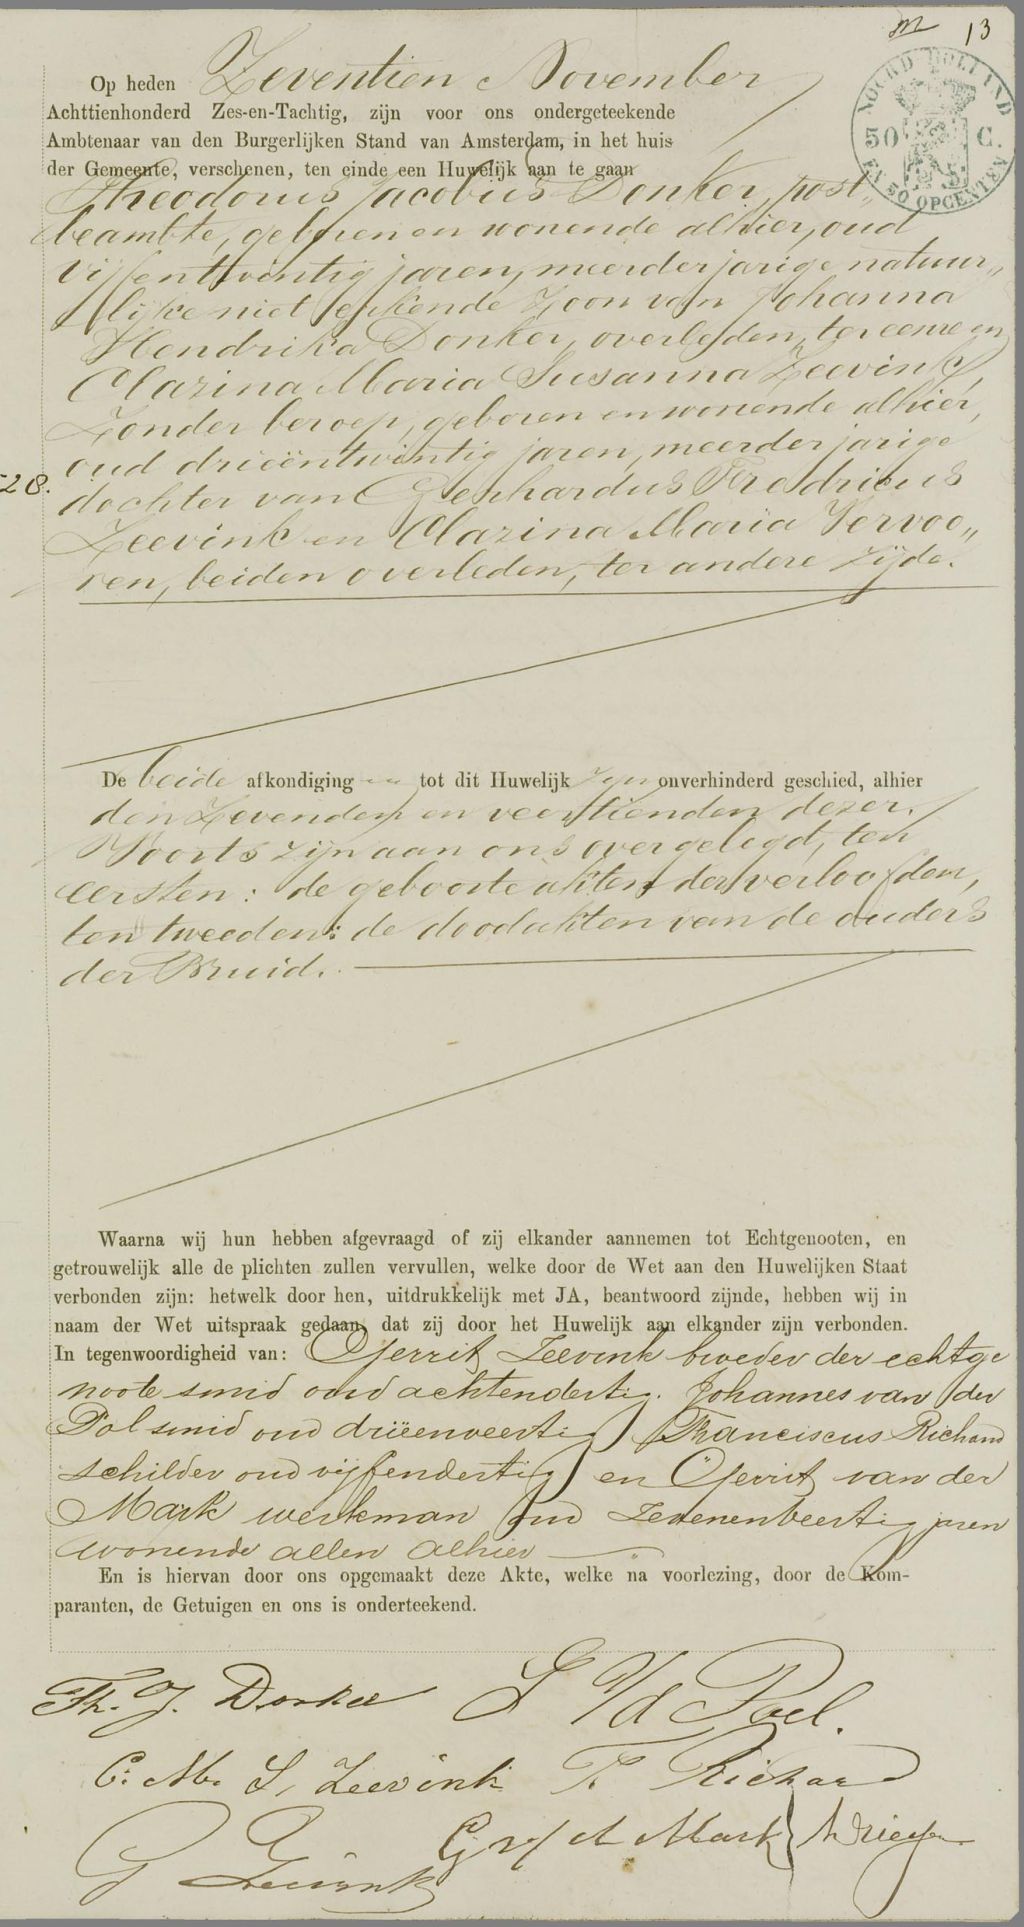 m 13
NOORD HOLLAND
50 C.
EN 50 OPCENTEN
Op heden Zeventien November
Achttienhonderd Zes-en-Tachtig, zijn voor ons ondergeteekende
Ambtenaar van den Burgerlijken Stand van Amsterdam, in het huis
der Gemeente, verschenen, ten einde een Huwelijk aan te gaan
Theodorus Jacobus Donker, post„
beambte, geboren en wonende alhier, oud
vijfentwintig jaren, meerderjarige natuur„
lijke niet erkende Zoon van Johanna
Hendrika Donker, overleden, ter eenre en
Clazina Maria Susanna Zeevink,
Zonder beroep, geboren en wonende alhier,
oud drieëntwintig jaren, meerderjarige
28.
dochter van Gerhardus Fredricus
Zeevink en Clazina Maria Vervoo„
ren, beiden overleden, ter andere zijde.
De beide afkondiging en tot dit Huwelijk zijn onverhinderd geschied, alhier
den Zevenden en veertienden dezer.
Voorts zijn aan ons overgelegd, ten
eersten: de geboorteakten der verloofden,
ten tweeden: de doodakten van de ouders
der Bruid.
Waarna wij hun hebben afgevraagd of zij elkander aannemen tot Echtgenooten, en
getrouwelijk alle de plichten zullen vervullen, welke door de Wet aan den Huwelijken Staat
verbonden zijn: hetwelk door hen, uitdrukkelijk met JA, beantwoord zijnde, hebben wij in
naam der Wet uitspraak gedaan, dat zij door het Huwelijk aan elkander zijn verbonden.
In tegenwoordigheid van: Gerrit Zeevink broeder der echtge
noote smid oud achtendertig. Johannes van der
Pol smid oud drieenveertig Franciscus Richard
schilder oud vijfendertig en Gerrit van der
Mark werkman oud Zevenenveertig jaren
wonende allen alhier
En is hiervan door ons opgemaakt deze Akte, welke na voorlezing, door de Kom-
paranten, de Getuigen en ons is onderteekend.
Th. J. Donker
J V/d Poel.
C. M. S. Zeevink
F. Richard
G v/d Mark
G Zeevink